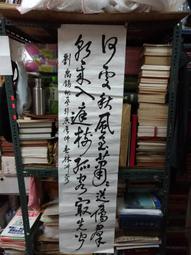 何處秋風至蕭蕭送雁群
朝來入庭樹孤客最先聞
劉禹錫秋風引